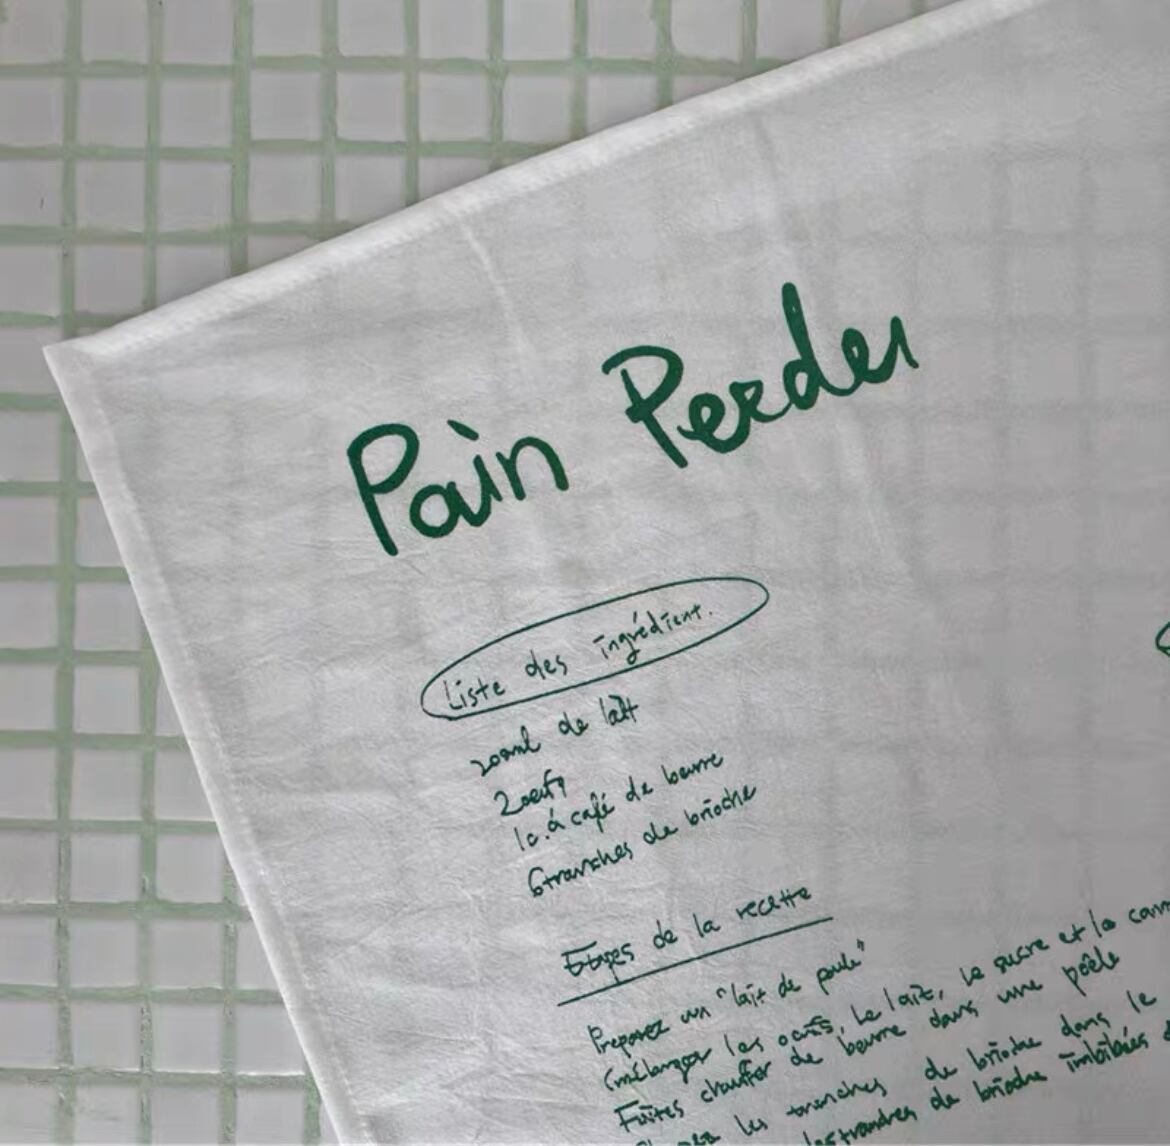 Pain Perdu
Liste des ingrédient.
200ml de lait
2 oeufs
1 c. à café de beurre
6 tranches de brioche
Etapes de la recette
Preparez un "lait de poule"
(mélanger les oeufs, le lait, le sucre et la cann
Faites chauffer de beurre dans une poêle
les tranches de brioche dans le
les tranches de brioche imbibées